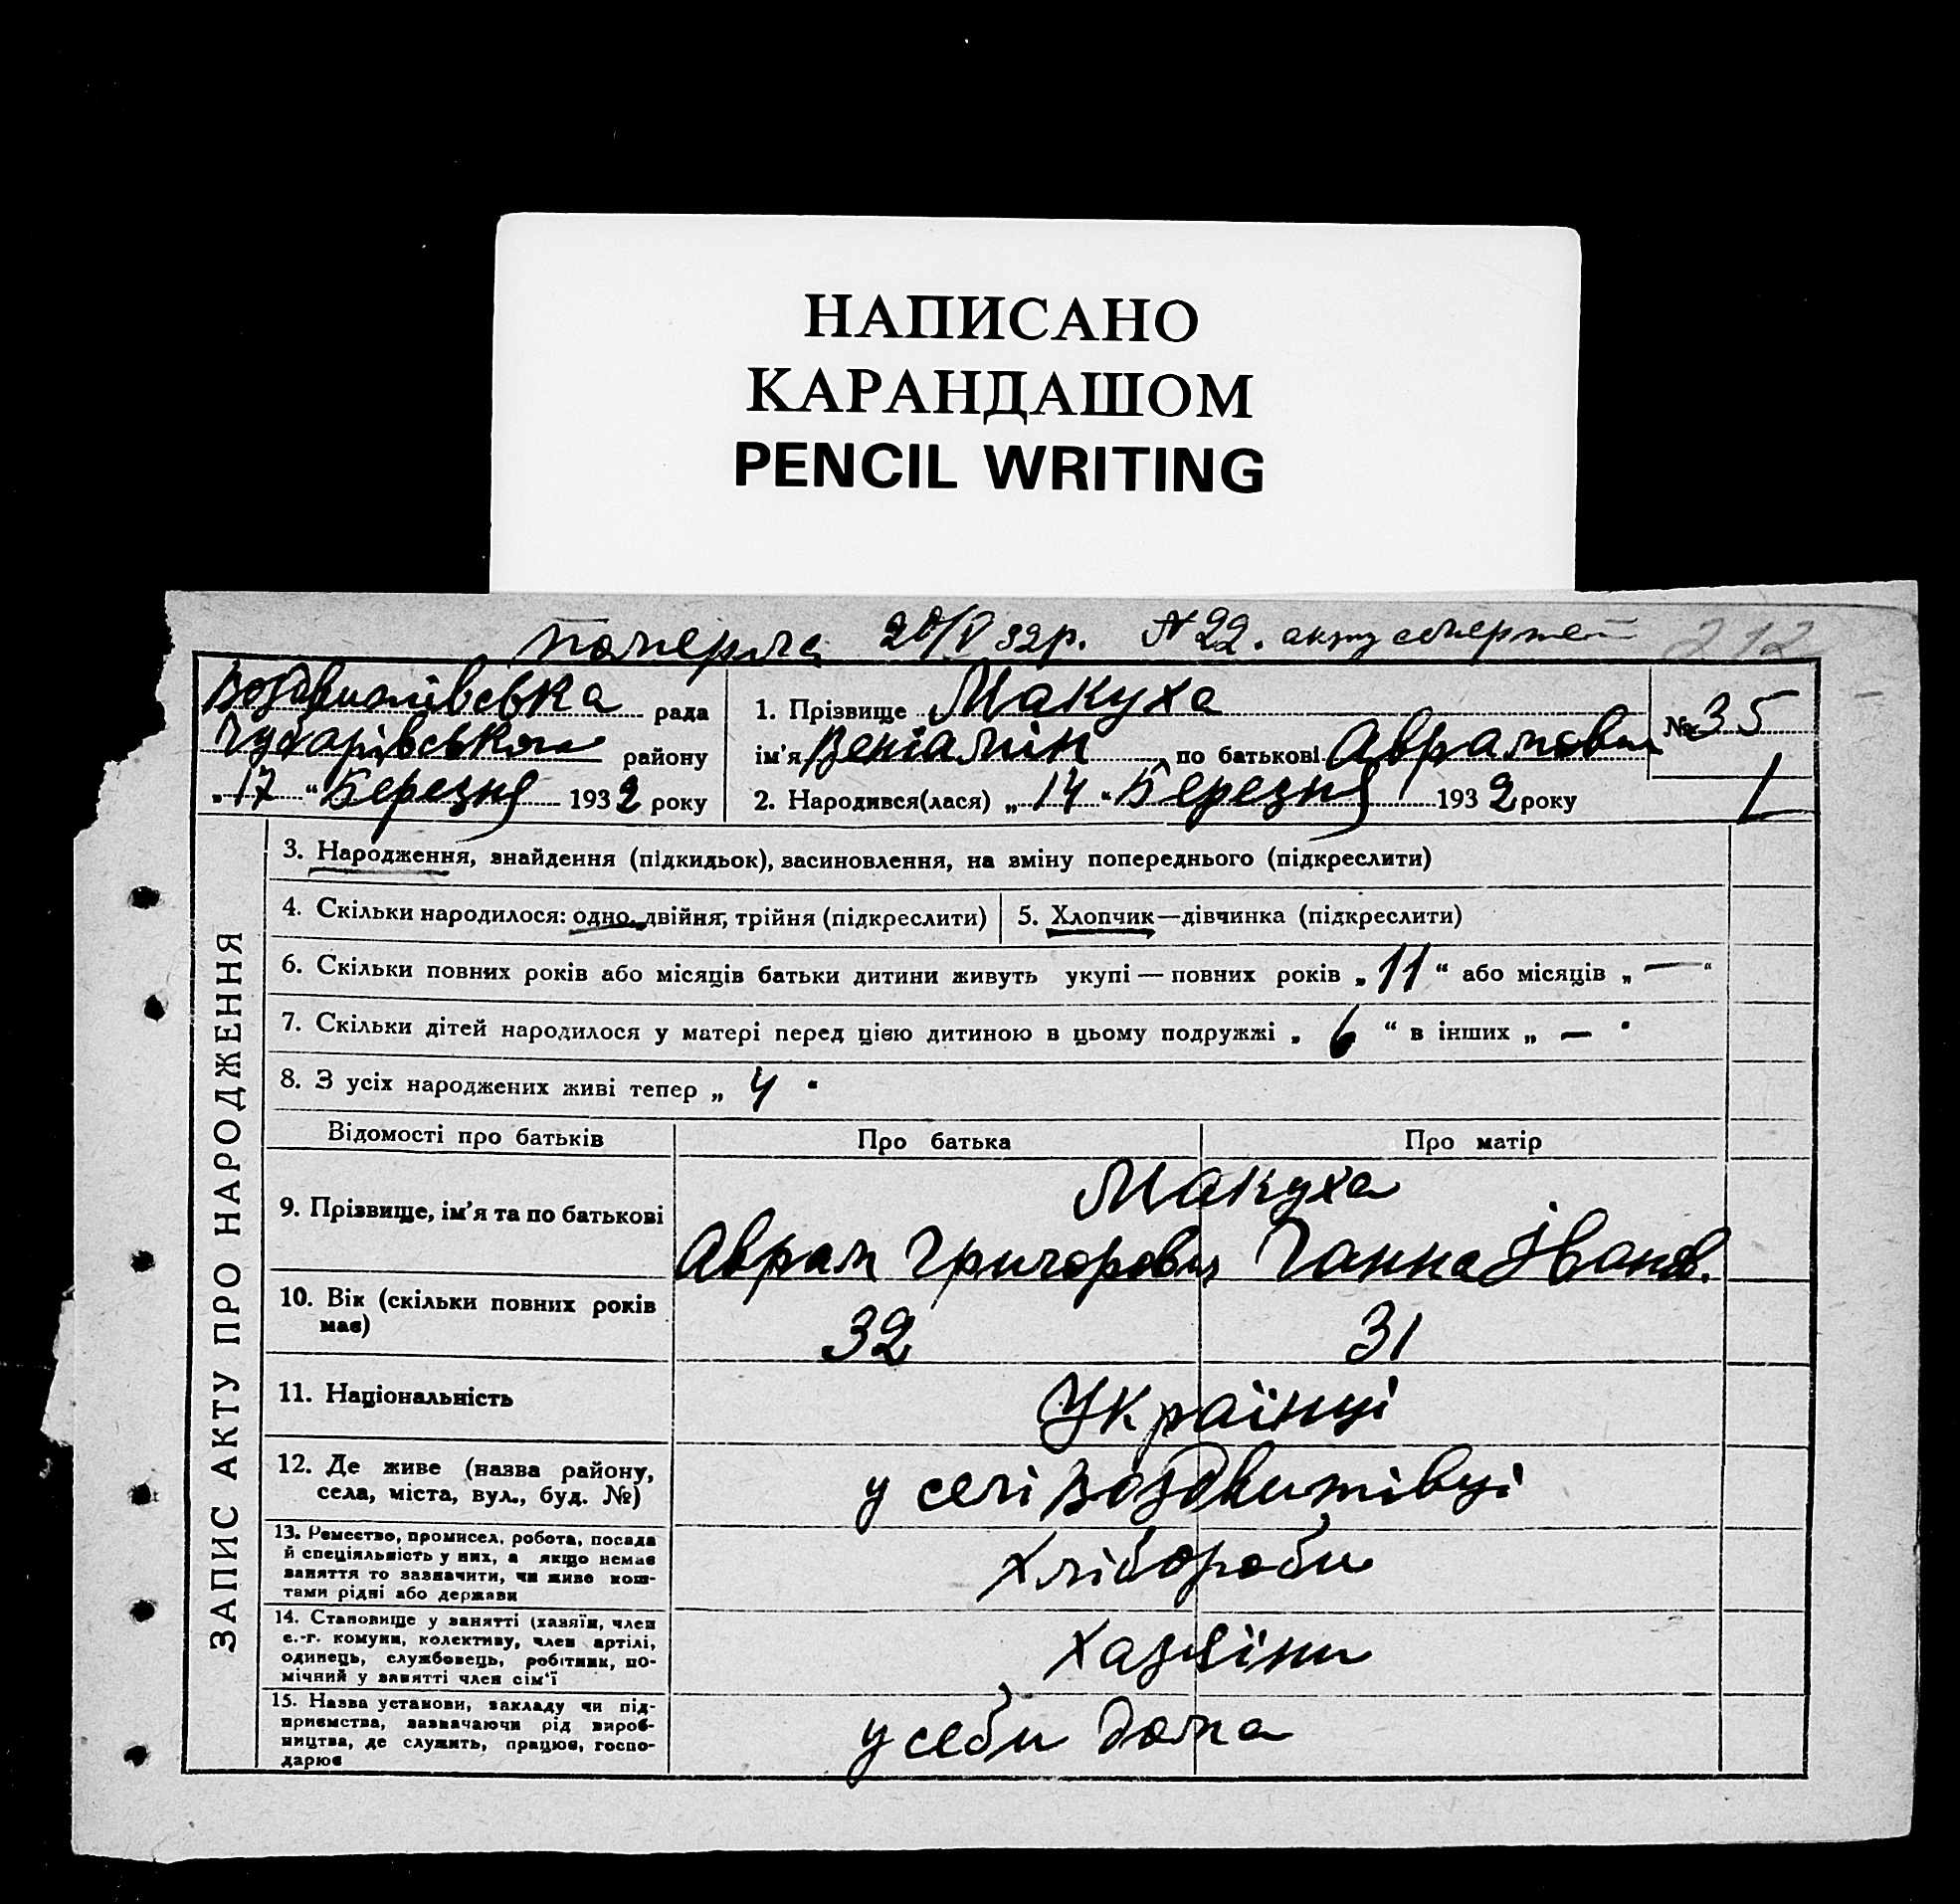 НАПИСАНО
КАРАНДАШОМ
PENCIL WRITING
померла 20/V 32р. №22. акту смерти 212
Воздвижівська рада
Чубарівського району
„17“ Березня 1932 року
1. Прізвище Макуха
ім'я Веніамін по батькові Аврамович
2. Народився(лася) „14“ Березня 1932 року
№ 35
1
ЗАПИС АКТУ ПРО НАРОДЖЕННЯ
3. Народження, знайдення (підкидьок), засиновлення, на зміну попереднього (підкреслити)
4. Скільки народилося: одно, двійня, трійня (підкреслити)
5. Хлопчик—дівчинка (підкреслити)
6. Скільки повних років або місяців батьки дитини живуть укупі — повних років „11“ або місяців „—“
7. Скільки дітей народилося у матері перед цією дитиною в цьому подружжі „6“ в інших „—“
8. З усіх народжених живі тепер „4“
Відомості про батьків Про батька Про матір
9. Прізвище, ім'я та по батькові
Макуха
Аврам Григорович Ганна Іванов.
10. Вік (скільки повних років
має)
32 31
11. Національність
Українці
12. Де живе (назва району,
села, міста, вул., буд. №)
у селі Воздвижівці
13. Ремество, промисел, робота, посада
й спеціяльність у них, а якщо немає
заняття то зазначити, чи живе кош-
тами рідні або держави
Хлібороби
14. Становище у занятті (хазяїн, член
с.-г. комуни, колективу, член артілі,
одинець, службовець, робітник, по-
мічний у занятті член сім'ї
хазяїни
15. Назва установи, закладу чи під-
приємства, зазначаючи рід вироб-
ництва, де служить, працює, госпо-
дарює
у себи дома